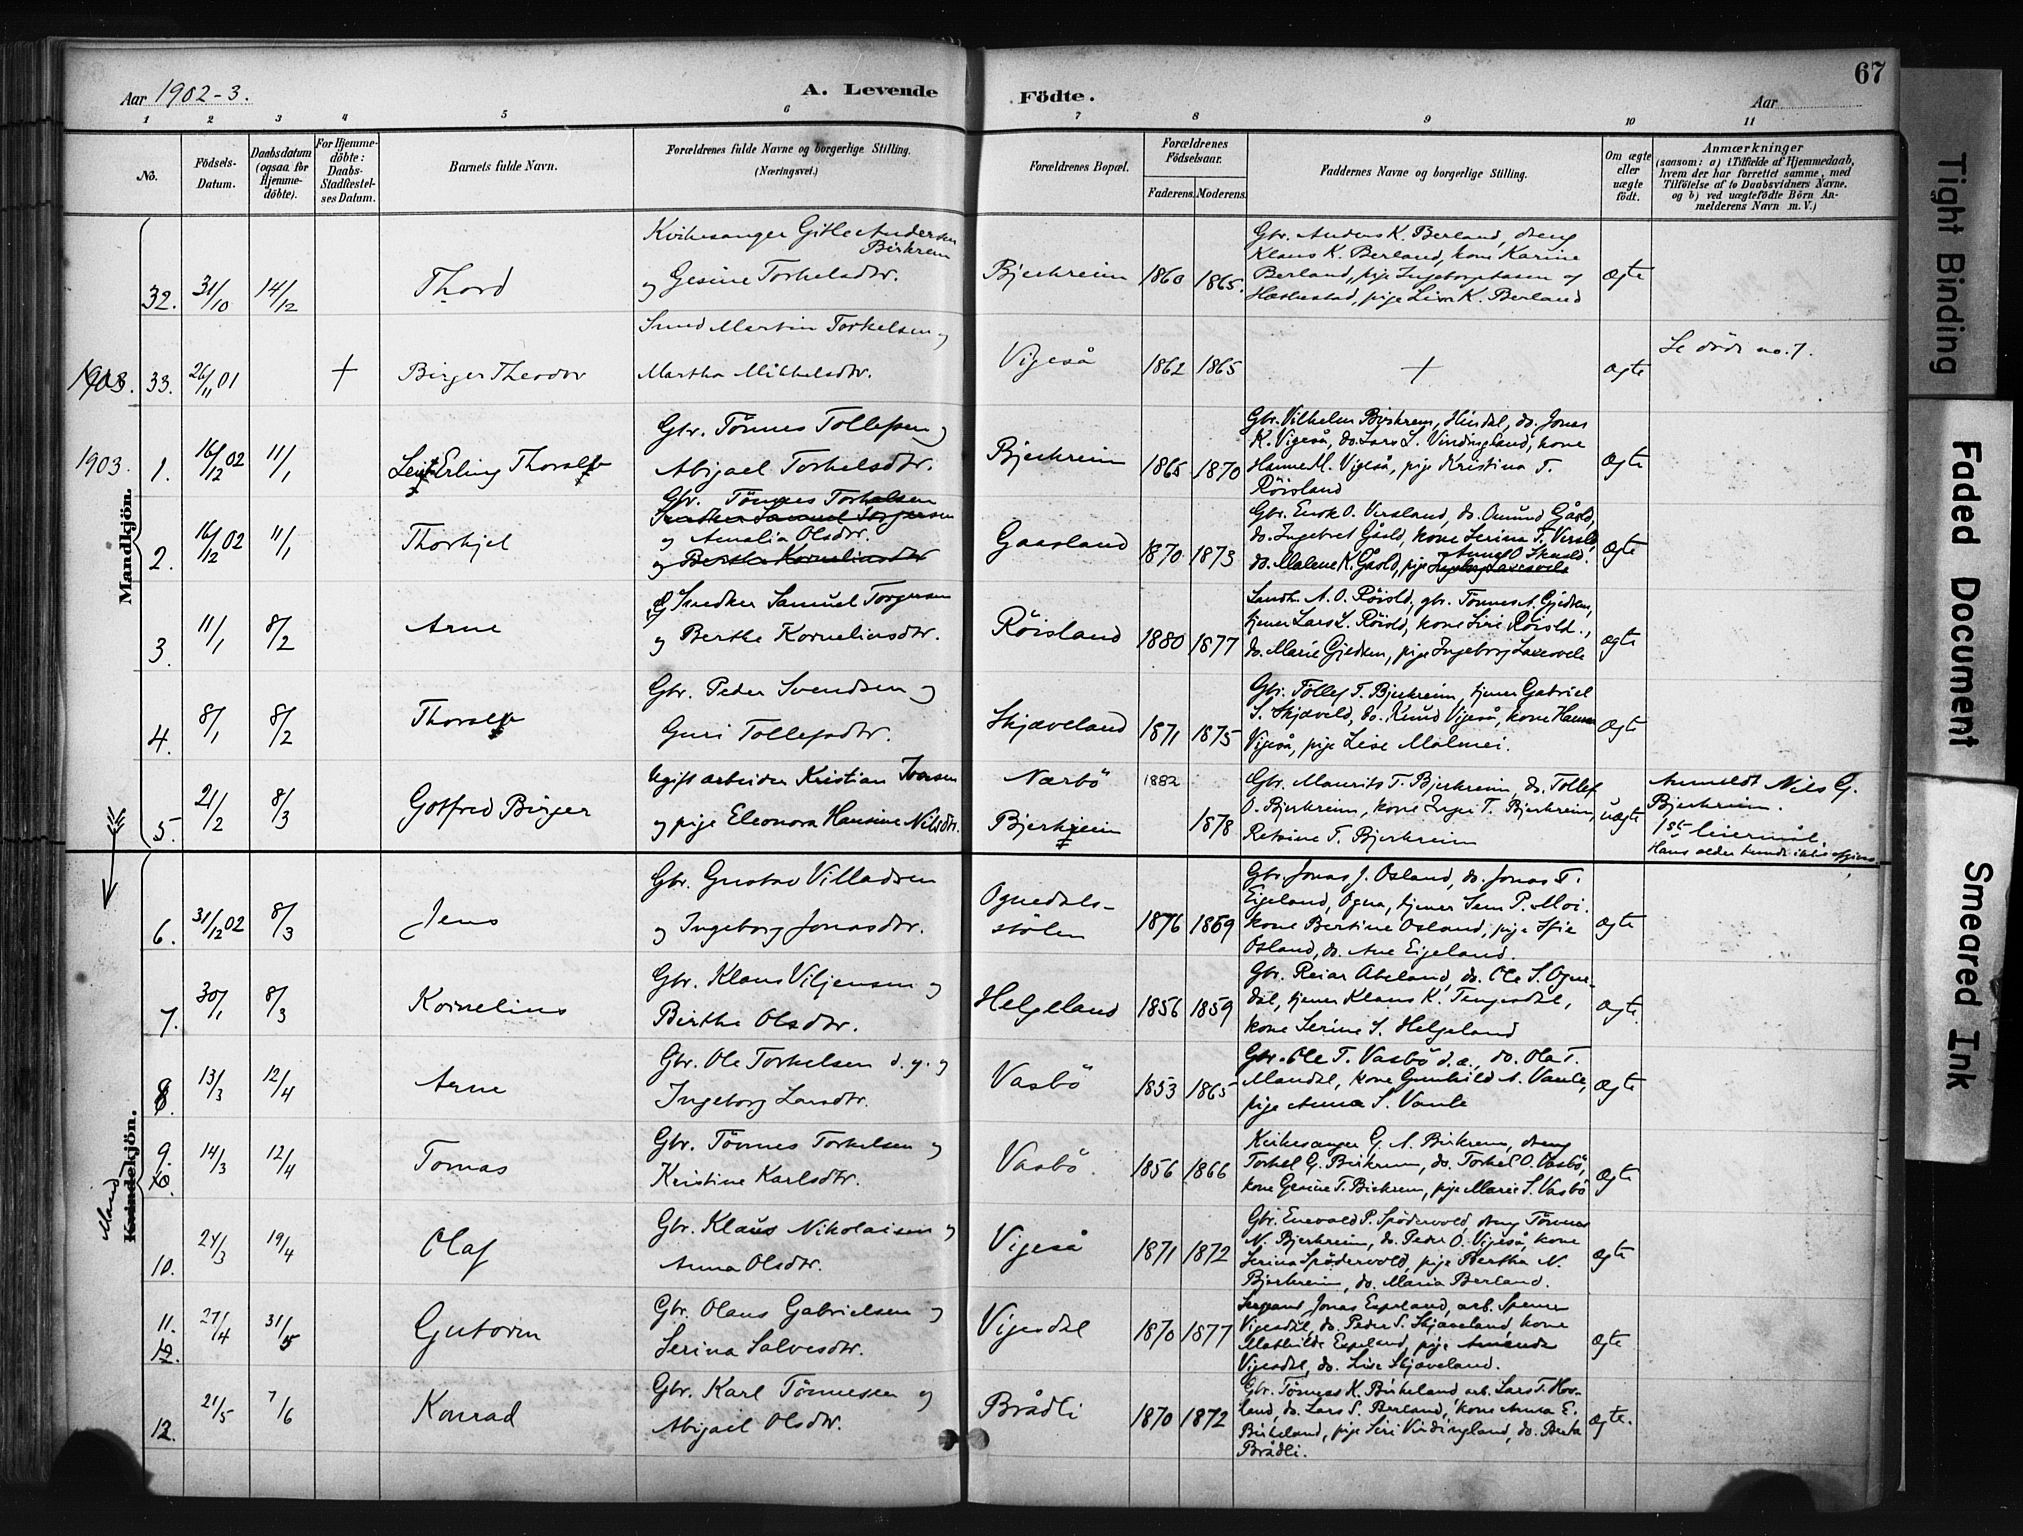 67
Aar 1902-3.
A. Levende
Födte.
Aar
1 2 3 4 5 6 7 8 9 10 11
No.
Födsels-Datum.
Daabsdatum (ogsaa for Hjemme-döbte).
For Hjemme-döbte: Daabs-Stadfæstel-ses Datum.
Barnets fulde Navn.
Forældrenes fulde Navne og borgerlige Stilling.
(Næringsvei.)
Forældrenes Bopæl.
Forældrenes Födselsaar.
Faderens. Moderens.
Faddernes Navne og borgerlige Stilling.
Om ægte eller uægte födt.
Anmærkninger
(saasom: a) i Tilfælde af Hjemmedaab,
hvem der har forrettet samme, med
Tilföielse af to Daabsvidners Navne,
og b) ved uægtefödte Börn An-
melderens Navn m. V.)
Mandkjön.
Kvindekjön.
Mand
32. 31/10 14/12 Thord
Kirkesanger Gitle Andersen
Birkrem
og Gesine Torkelsdtr.
Bjerkreim 1860 1865.
Gbr. Anders K. Berland, dreng
Klaus K. Berland, kone Karine
Berland, pige Ingeborg
pige K. Berland
ægte
1903. 33. 26/11 01 + Birger Theodor
Smed Martin Torkelsen og
Martha Mikkelsdtr.
Vigeså 1862 1865 + ægte
Se döde no. 7.
1903. 1. 16/12 02 11/1 Leif Erling Thoralf
Gbr. Tönnes Tollefsen og
Abigael Torkelsdtr.
Bjerkreim 1865 1870
Gbr. Vilhelm Birkrem, do. Jonas
K. Vigeså, do. Lars L. Vindingland, kone
Hanne M. Vigeså, pige Kristina T.
Röisland
ægte
2. 16/12 02 11/1 Thorkjel
Gbr. Tönnes Torkelsen
Snedker Samuel Torgersen
og Amalia Olsdtr.
og Berthe Korneliusdtr
Gaasland 1870 1873
Gbr. Enok O. Virsland, do. Omund Gåsld,
do. Ingebret Gåsld, kone Serina T. Virsld,
Anne O. Skasld.
do. Malene K. Gåsld, pige Ingeborg Laxesvele
ægte
3. 11/1 8/2 Arne
Snedker Samuel Torgersen
og Berthe Korneliusdtr.
Röisland 1880 1877
Landh. A. O. Röisld, gbr. Tönnes A. Gjedrem,
tjener Lars L. Röisld, kone Siri Röisld.,
do. Marie Gjedrem, pige Ingeborg Laxesvele
ægte
4. 8/1 8/2 Thoralf
Gbr. Peder Svendsen og
Guri Tollefsdtr.
Skjæveland 1871 1875
Gbr. Tollef T. Bjerkreim, tjener Gabriel
S. Skjæveld, do. Knud Vigeså, kone Hanne
Vigeså, pige Lise Malmei.
ægte
5. 21/2 8/3 Gotfred Birger
Ugift arbeider Kristian Iversen
og pige Eleonora Hansine Nilsdtr.
Nærbö 1882
Bjerkreim 1878
Gbr. Maurits T. Bjerkreim, do. Tollef
O. Bjerkreim, kone Inger T. Bjerkreim,
Retvine T. Bjerkreim
uægte
Anmeldt Nils G.
Bjerkreim.
1ste leiermål.
Hans alder kunde ikke opgives.
6. 31/12 02 8/3 Jens
Gbr. Gustav Villadsen
og Ingeborg Jonasdtr.
Ognedals-
stölen
1876 1869
Gbr. Jonas J. Osland, do. Jonas T.
Eigeland, Ogna, tjener Sem P. Moi.
kone Bertine Osland, pige
Osland, do. Ane Eigeland.
ægte
7. 30/1 8/3 Kornelius
Gbr. Klaus Viljensen og
Birthe Olsdtr.
Helgeland 1856 1859
Gbr. Reiar Abeland, do. Ole S. Ogne-
dal, tjener Klaus K. Tengesdal,
kone Serine S. Helgeland
ægte.
8. 13/3 12/4 Arne
Gbr. Ole Torkelsen d. y. og
Ingeborg Larsdtr.
Vasbö 1853 1865
Gbr. Ole T. Vasbö d. æ., do. Ola T.
Mandal, kone Gunhild A. Vanle,
pige Anna S. Vanle
ægte
9. 14/3 12/4 Tomas
Gbr. Tönnes Torkelsen og
Kristine Karlsdtr.
Vasbö 1856 1866
Kirkesanger G. A. Birkrem, dreng
Torkel G. Birkrem, do. Torkel O. Vasbö,
kone Gesine T. Birkrem, pige Marie S. Vasbö
ægte
10. 24/3 19/4 Olaf
Gbr. Klaus Nikolaisen og
Anna Olsdtr.
Vigeså 1871 1872
Gbr. Enevald P. Spödervold, dreng Tönnes
N. Bjerkreim, do. Peder O. Vigeså, kone
Serina Spödervold, pige Bertha N.
Bjerkreim, do. Maria Berland.
ægte
11. 27/4 31/5 Gutorm
Gbr. Olaus Gabrielsen og
Serina Salvesdtr.
Vigesdal 1870 1877
Sergeant Jonas Espeland, arb. Spener
Vigesdal, do. Peder S. Skjæveland, kone
Mathilde Espeland, pige Amanda
Vigesdal, do. Lise Skjæveland.
ægte
12. 21/5 7/6 Konrad
Gbr. Karl Tönnesen og
Abigael Olsdtr.
Brådli 1870 1872
Gbr. Tönnes H. Birkeland, arb. Lars T. Hov-
land, do. Lars S. Berland, kone Anna E.
Birkeland, pige Siri Vindingland, do. Berta
Brådli.
ægte.
Tight Binding
Faded Document
Smeared Ink